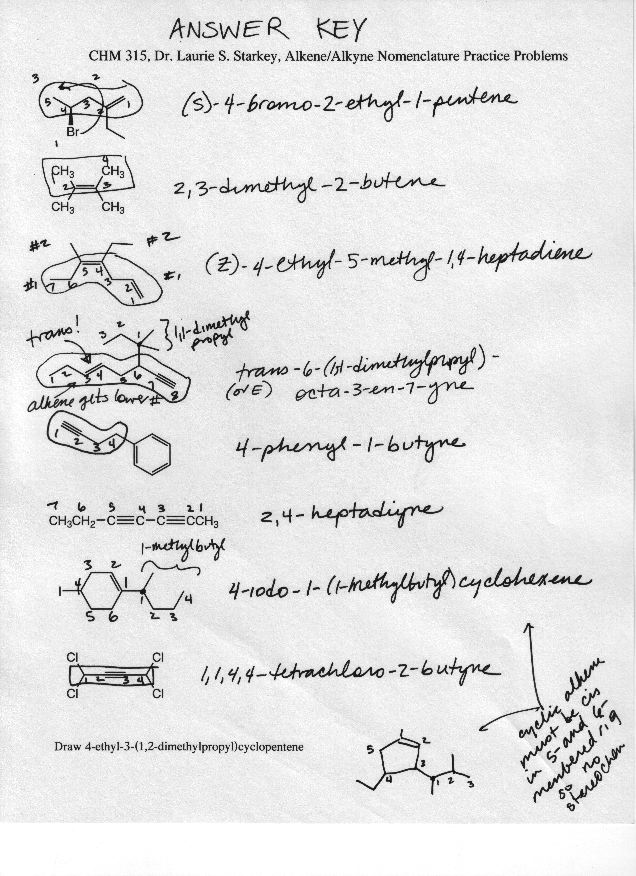 ANSWER KEY
CHM 315, Dr. Laurie S. Starkey, Alkene/Alkyne Nomenclature Practice Problems
3 2
5 4 3 2 1
Br
1
(S)-4-bromo-2-ethyl-1-pentene
4
CH3 CH3
2 3
CH3 CH3
2,3-dimethyl-2-butene
#2 #2
5 4
#1 7 6 3 2 1 #1
(Z)-4-ethyl-5-methyl-1,4-heptadiene
trans!
3 2 1
1,1-dimethyl
propyl
1 2 3 4 5 6 7 8
alkene gets lower #
trans-6-(1,1-dimethylpropyl)-
(or E) octa-3-en-7-yne
1 2 3 4
4-phenyl-1-butyne
7 6 5 4 3 2 1
CH3CH2-C≡C-C≡CCH3
2,4-heptadiyne
1-methylbutyl
3 2
I 4 1 1 4
5 6 2 3
4-iodo-1-(1-methylbutyl)cyclohexene
Cl Cl
1 2 3 4
Cl Cl
1,1,4,4-tetrachloro-2-butyne
cyclic alkene
must be cis
in 5- and 6-
membered rig
so no
stereochem
Draw 4-ethyl-3-(1,2-dimethylpropyl)cyclopentene
1
5 2
4 3
1 2 3